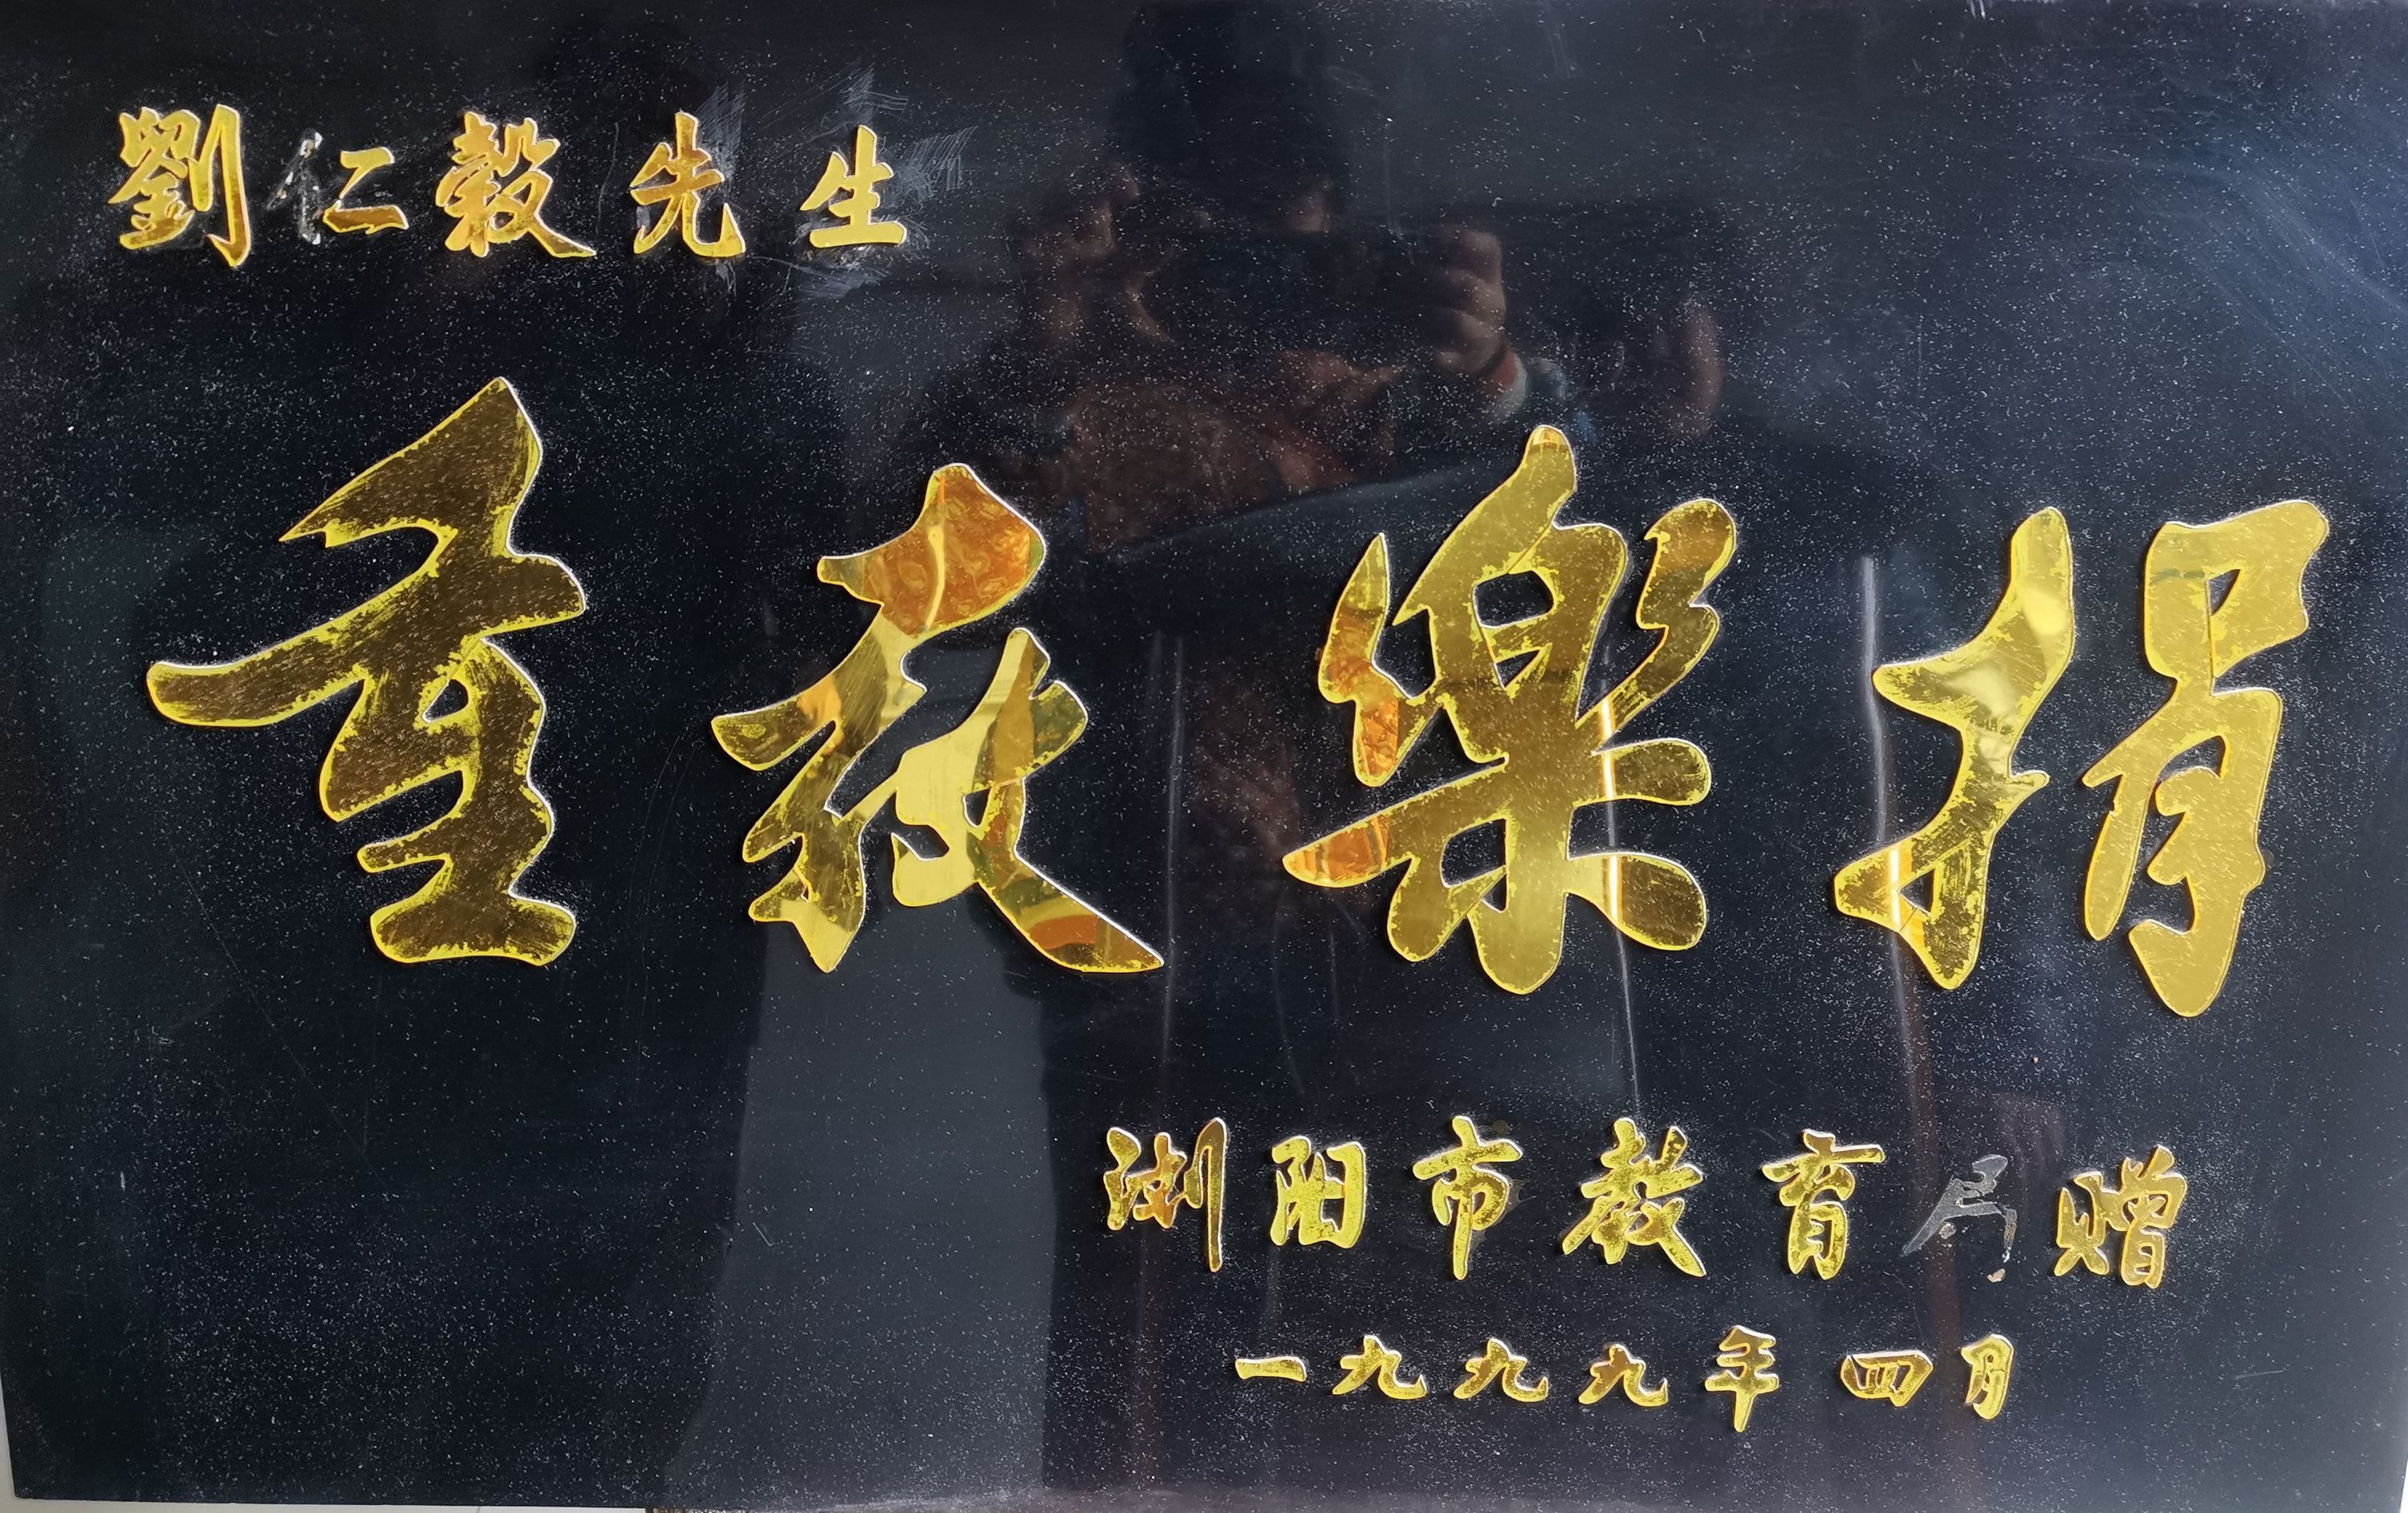 劉仁穀先生
重教樂捐
浏阳市教育局赠
一九九九年四月